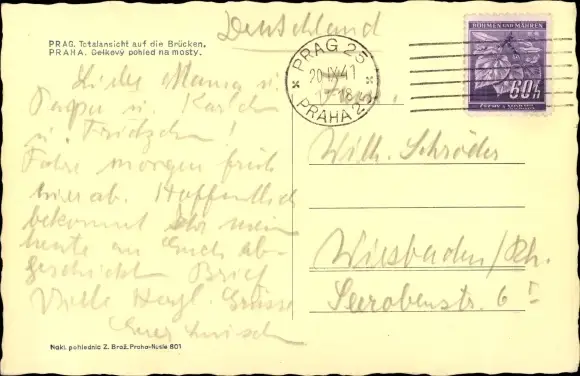 Deutschland
PRAG. Totalansicht auf die Brücken.
PRAHA. Celkový pohled na mosty.
PRAG 25
20.IX.41
17-18
PRAHA 25
BÖHMEN UND MÄHREN
60h
ČECHY A MORAVA
Liebe Mama u.
Papa u. Karlch
u. Fritzchen!
Fahre morgen früh
hier ab. Hoffentlich
bekommt Ihr mein
heute an Euch ab-
geschickten Brief
Viele Hzgl. Grüsse
Euer
Wilh. Schröder
Wiesbaden/Rh.
Seerobenstr. 6 I
Nákl. pohlednic Z. Brož. Praha-Nusle 601